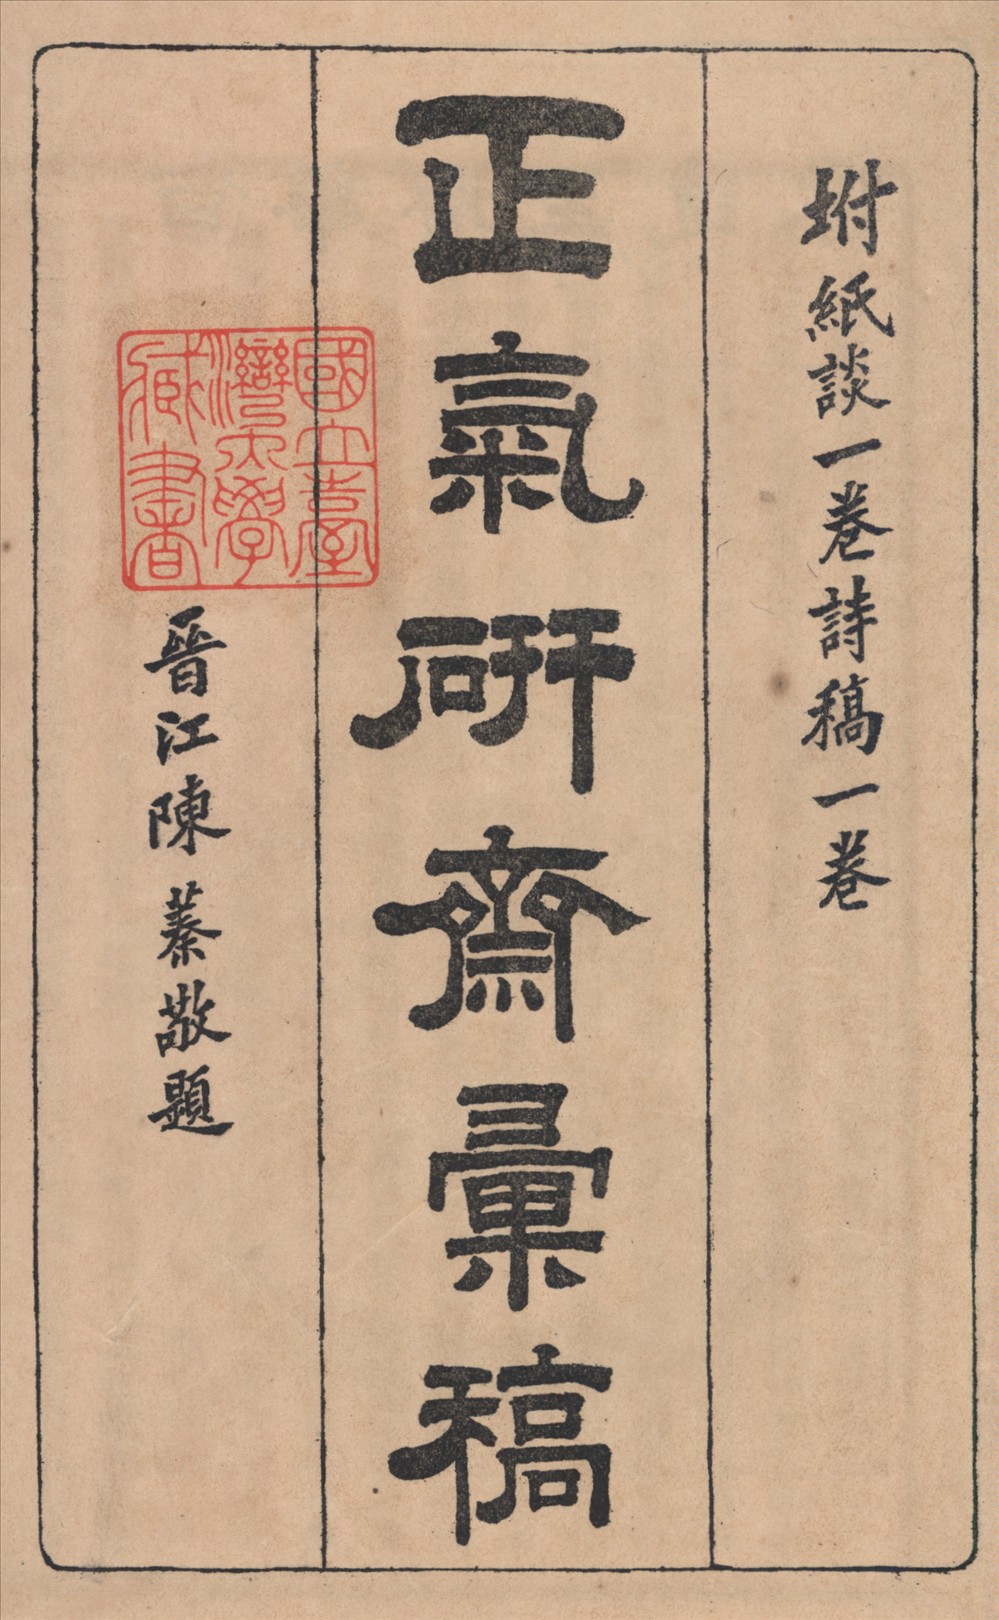 坿紙談一卷詩稿一卷
正氣硏齋彙稿
國立臺
灣大學
藏書
晉江陳蓁敬題